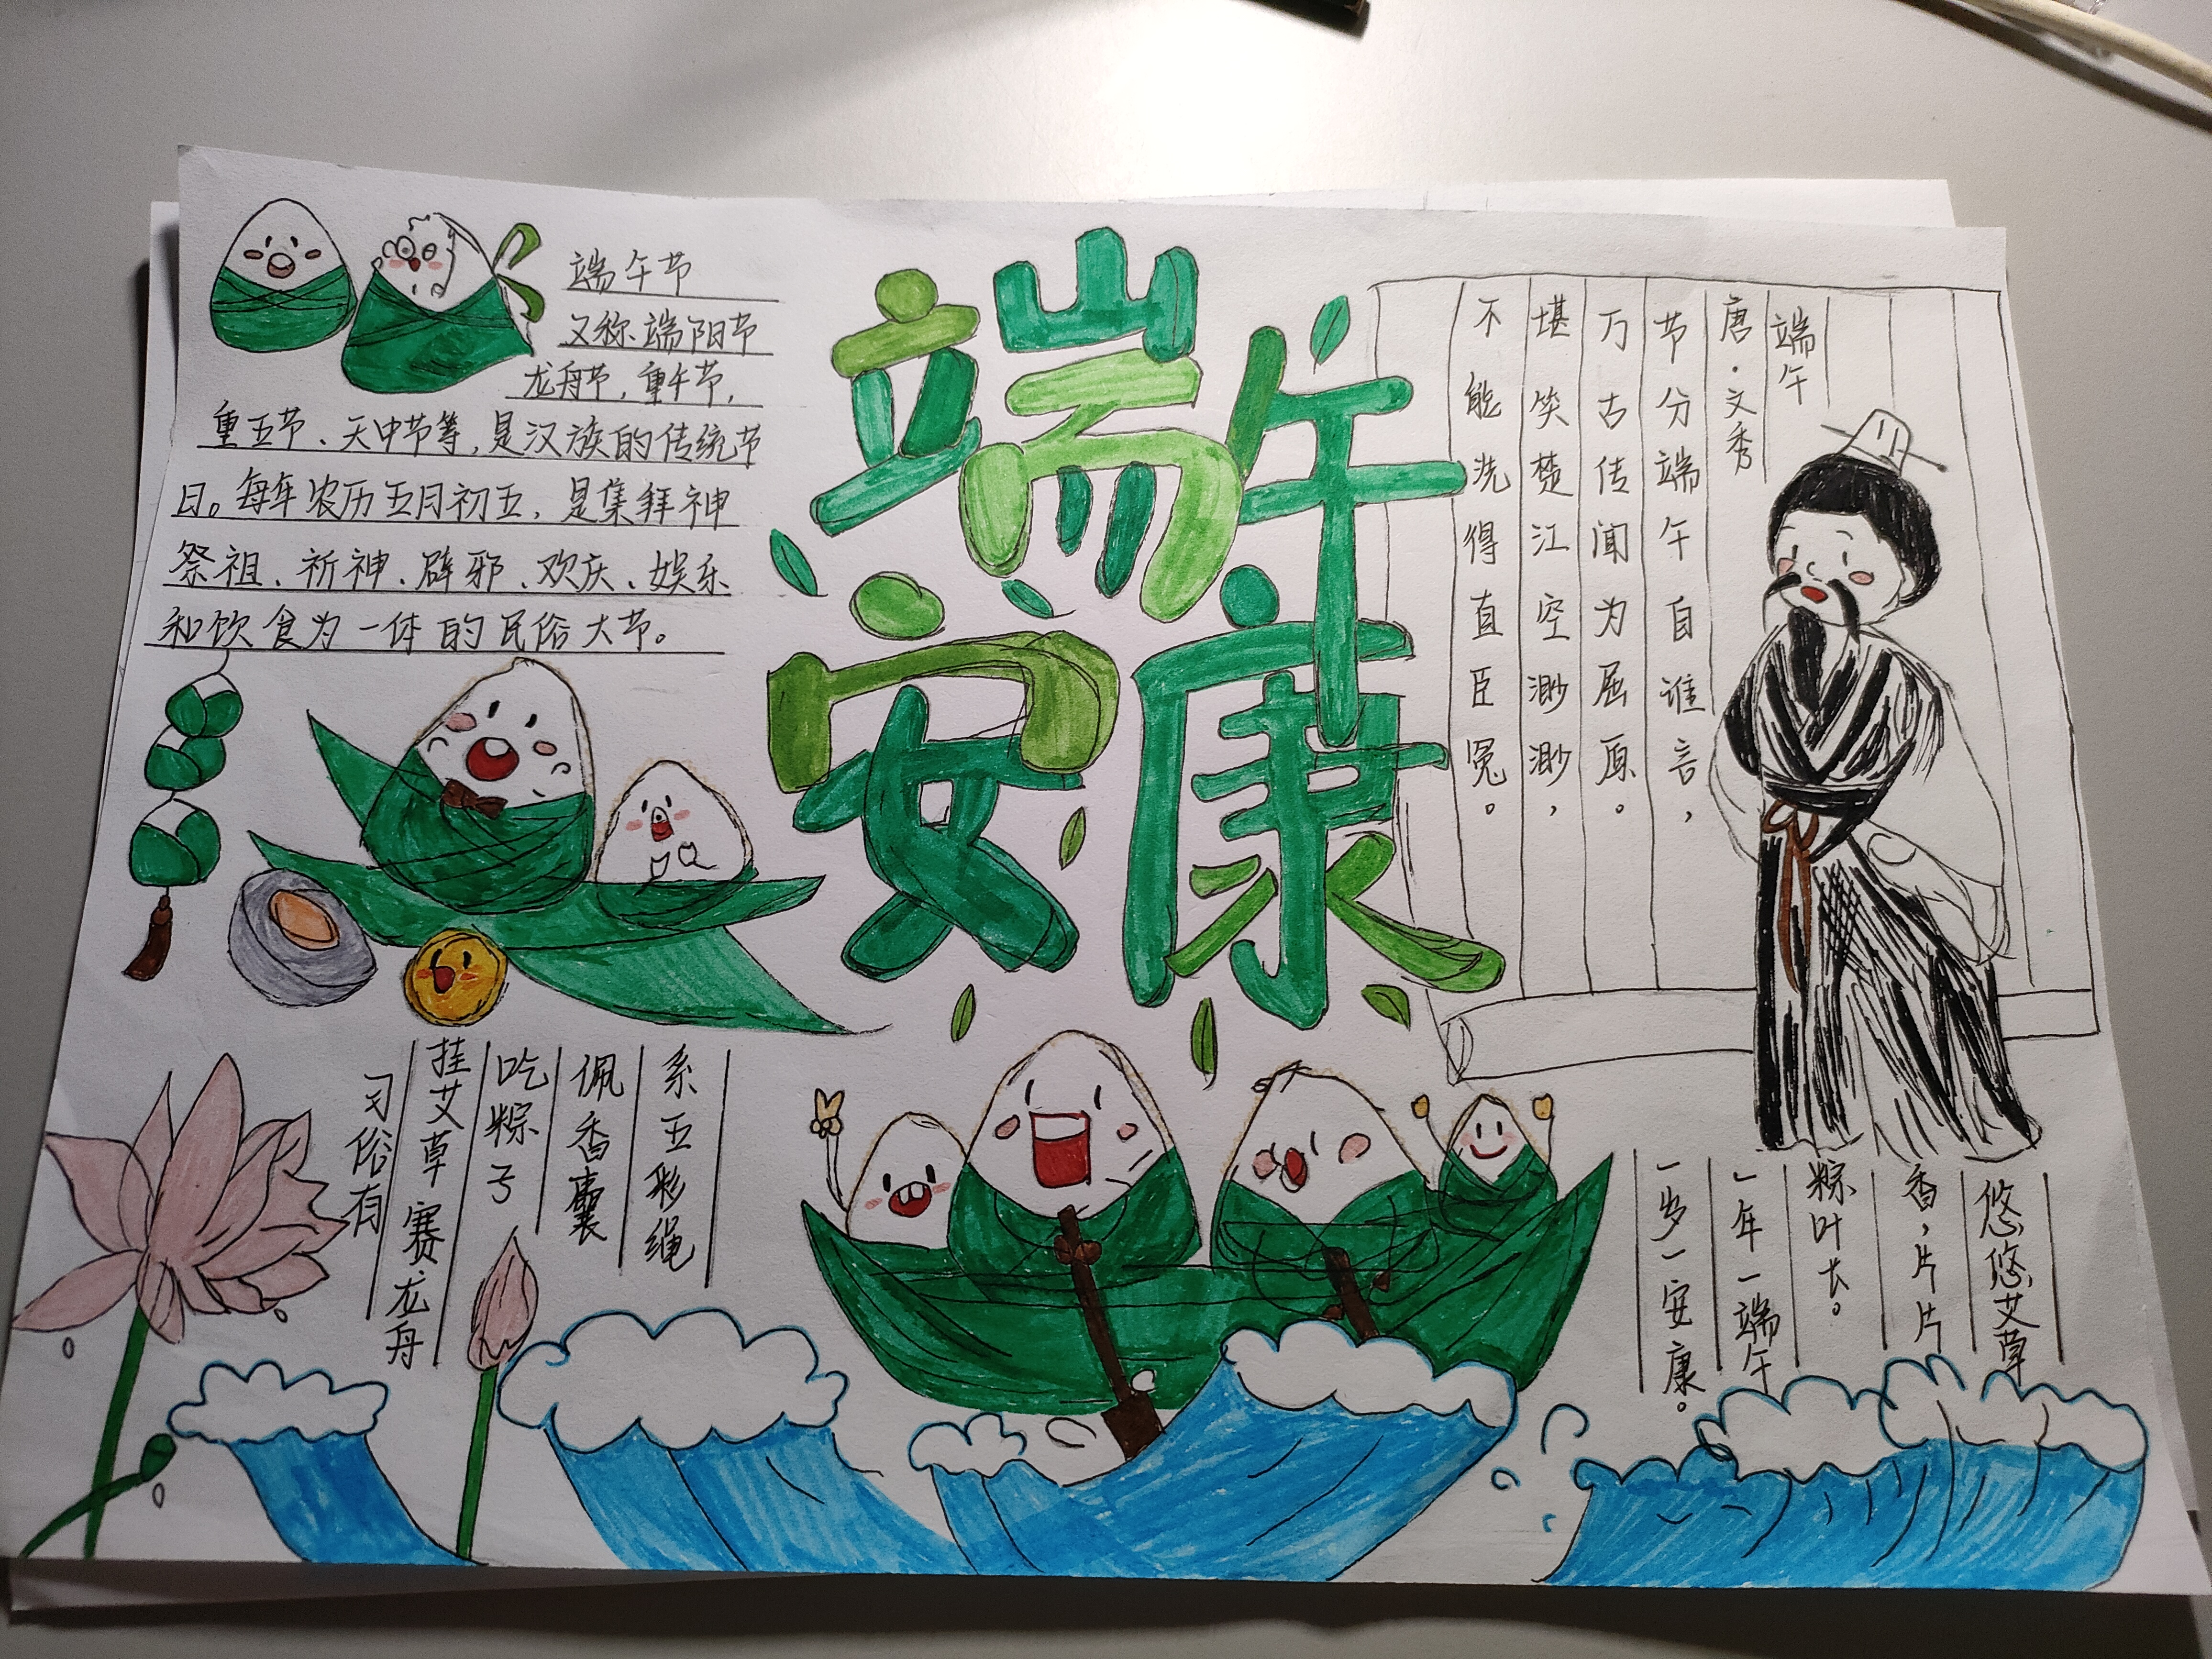 端午安康
端午节
又称端阳节
龙舟节，重午节，
重五节、天中节等，是汉族的传统节
日。每年农历五月初五，是集拜神
祭祖、祈神、辟邪、欢庆、娱乐
和饮食为一体的民俗大节。
端午
唐·文秀
节分端午自谁言，
万古传闻为屈原。
堪笑楚江空渺渺，
不能洗得直臣冤。
习俗有
挂艾草 赛龙舟
吃粽子
佩香囊
系五彩绳
悠悠艾草
香，片片
粽叶长。
一年一端午
一岁一安康。